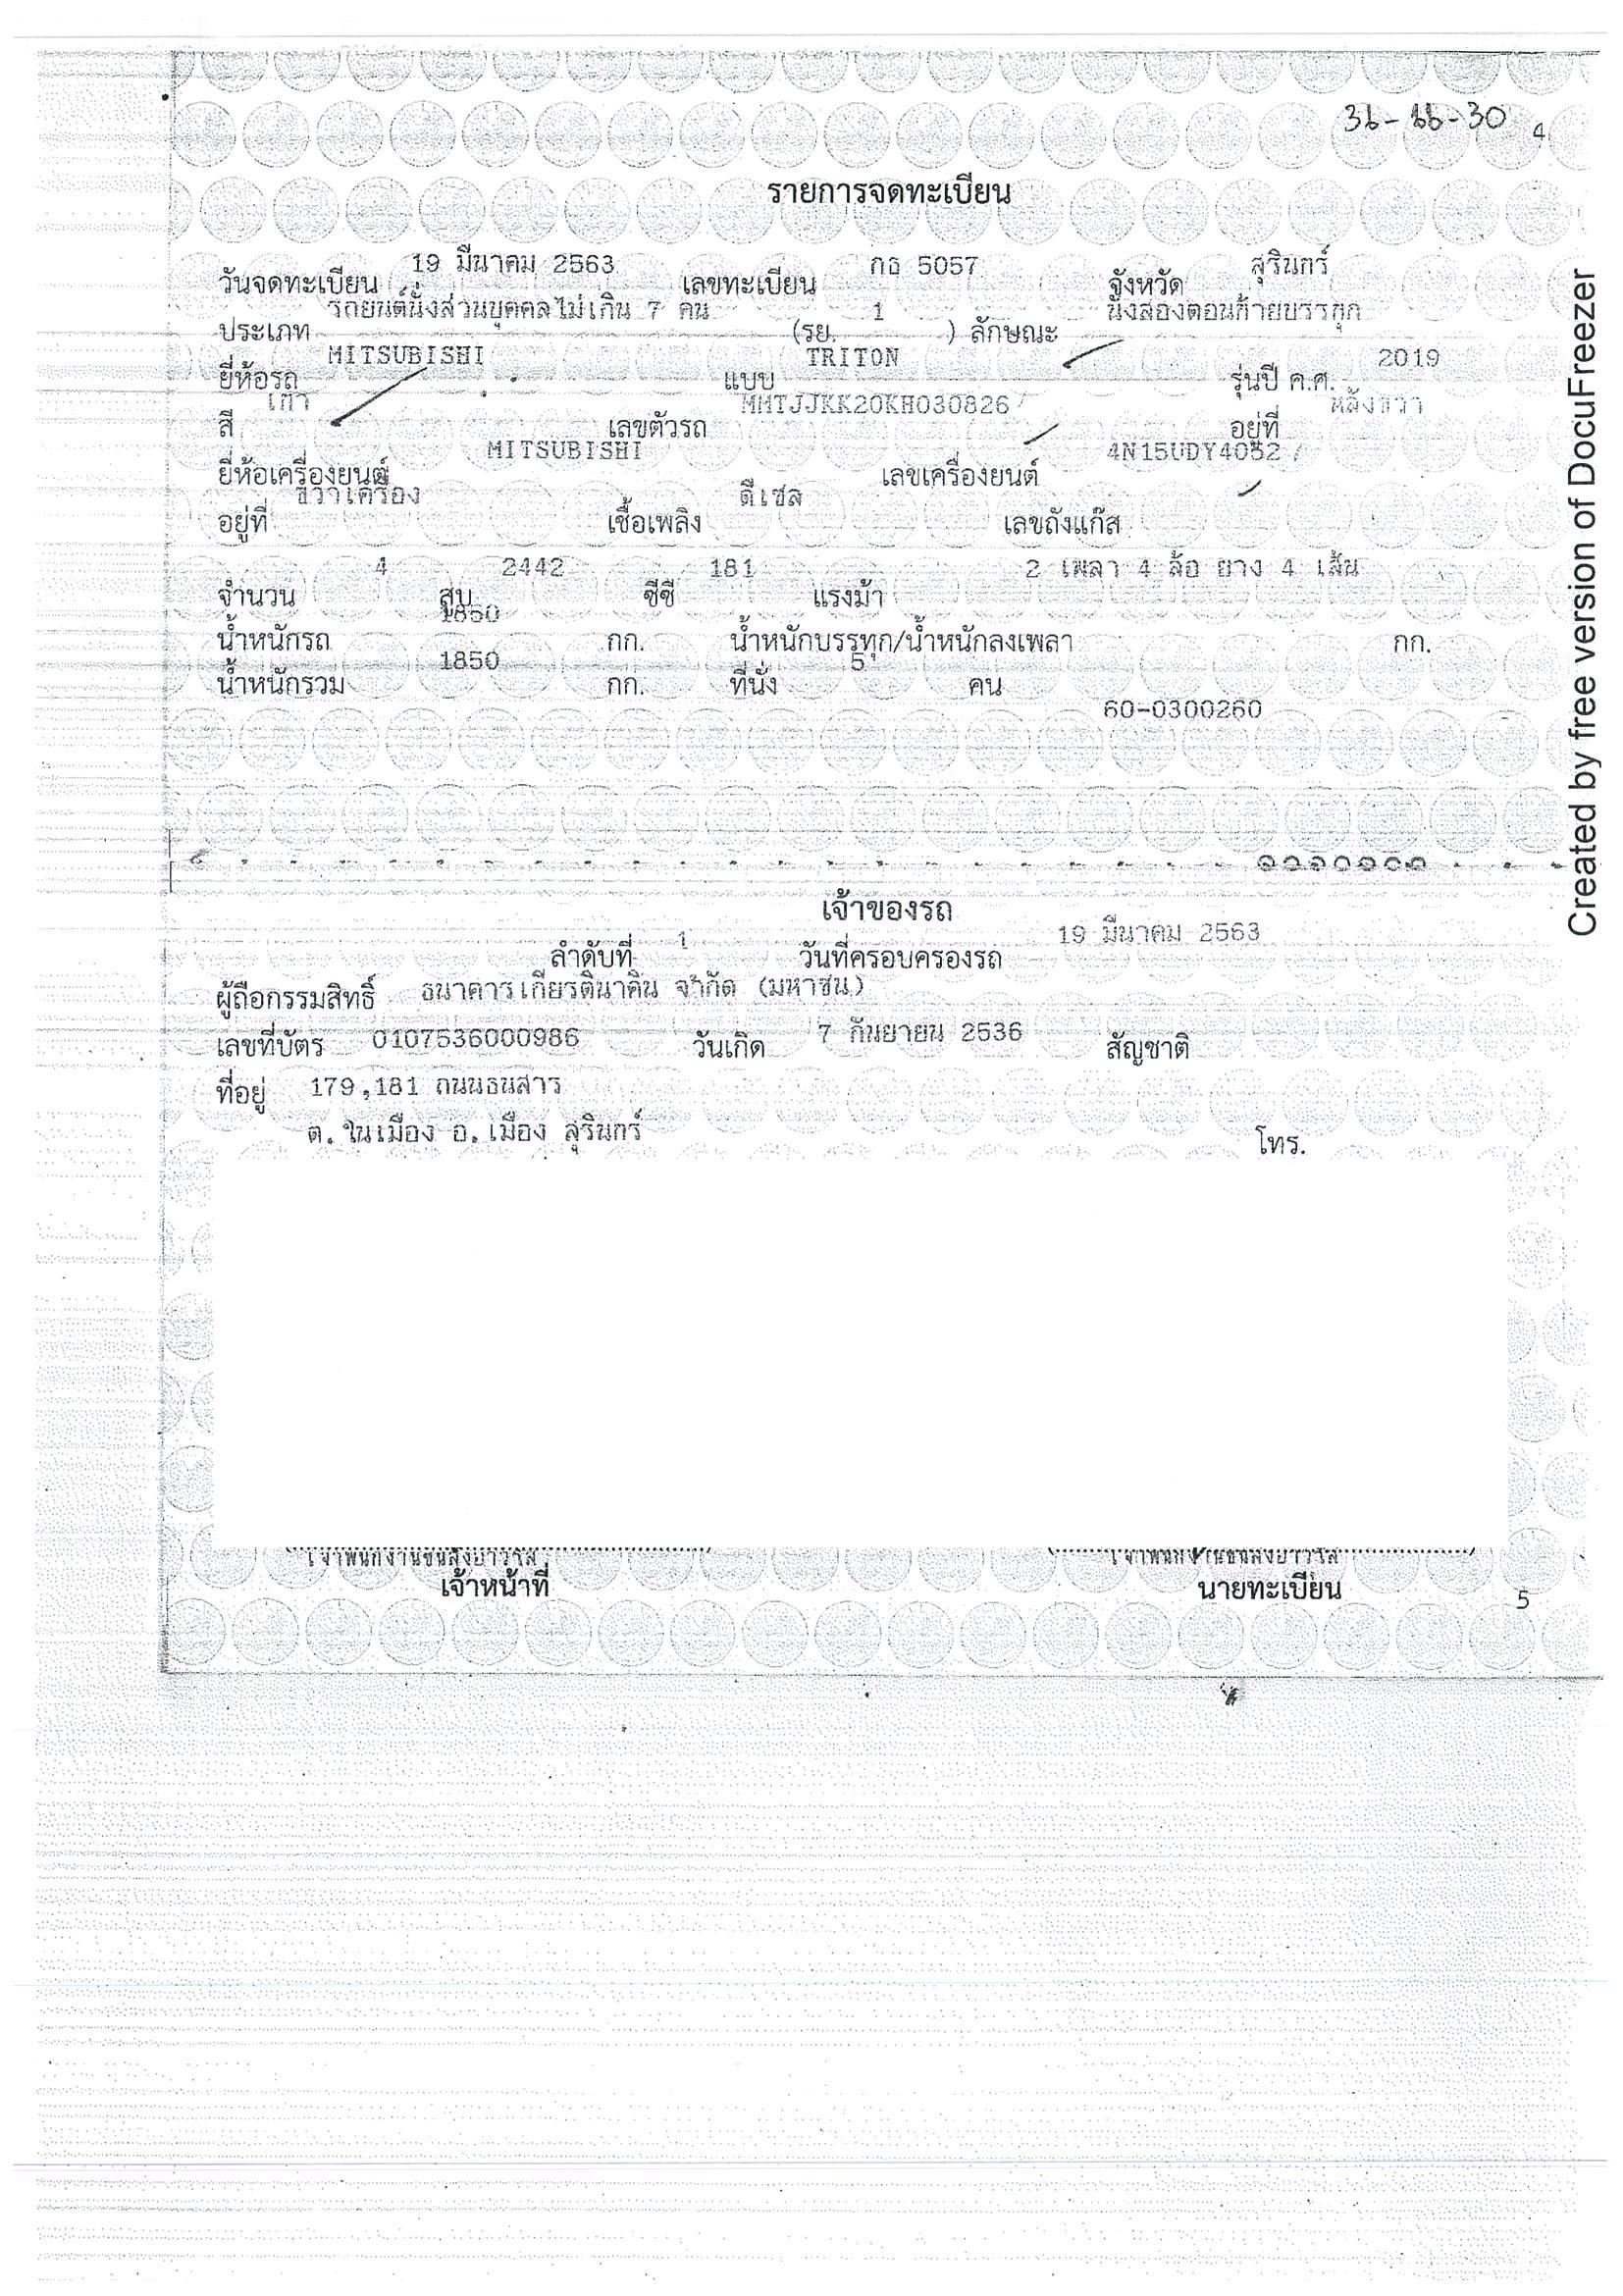 36-66-30 4
รายการจดทะเบียน
วันจดทะเบียน 19 มีนาคม 2563 เลขทะเบียน กธ 5057 จังหวัด สุรินทร์
ประเภท รถยนต์นั่งส่วนบุคคลไม่เกิน 7 คน (รย. 1 ) ลักษณะ นั่งสองตอนท้ายบรรทุก
ยี่ห้อรถ MITSUBISHI แบบ TRITON รุ่นปี ค.ศ. 2019
สี เทา เลขตัวรถ MMTJJKK20KH030826 อยู่ที่ หลังขวา
ยี่ห้อเครื่องยนต์ MITSUBISHI เลขเครื่องยนต์ 4N15UDY4052
อยู่ที่ ขวาเครื่อง เชื้อเพลิง ดีเซล เลขถังแก๊ส
จำนวน 4 สูบ 2442 ซีซี 181 แรงม้า 2 เพลา 4 ล้อ ยาง 4 เส้น
น้ำหนักรถ 1850 กก. น้ำหนักบรรทุก/น้ำหนักลงเพลา กก.
น้ำหนักรวม 1850 กก. ที่นั่ง 5 คน
60-0300260
เจ้าของรถ
ลำดับที่ 1 วันที่ครอบครองรถ 19 มีนาคม 2563
ผู้ถือกรรมสิทธิ์ ธนาคารเกียรตินาคิน จำกัด (มหาชน)
เลขที่บัตร 0107536000986 วันเกิด 7 กันยายน 2536 สัญชาติ
ที่อยู่ 179,181 ถนนธนสาร
ต.ในเมือง อ.เมือง สุรินทร์ โทร.
เจ้าพนักงานขนส่งอาวุโส เจ้าพนักงานขนส่งอาวุโส
เจ้าหน้าที่ นายทะเบียน 5
Created by free version of DocuFreezer